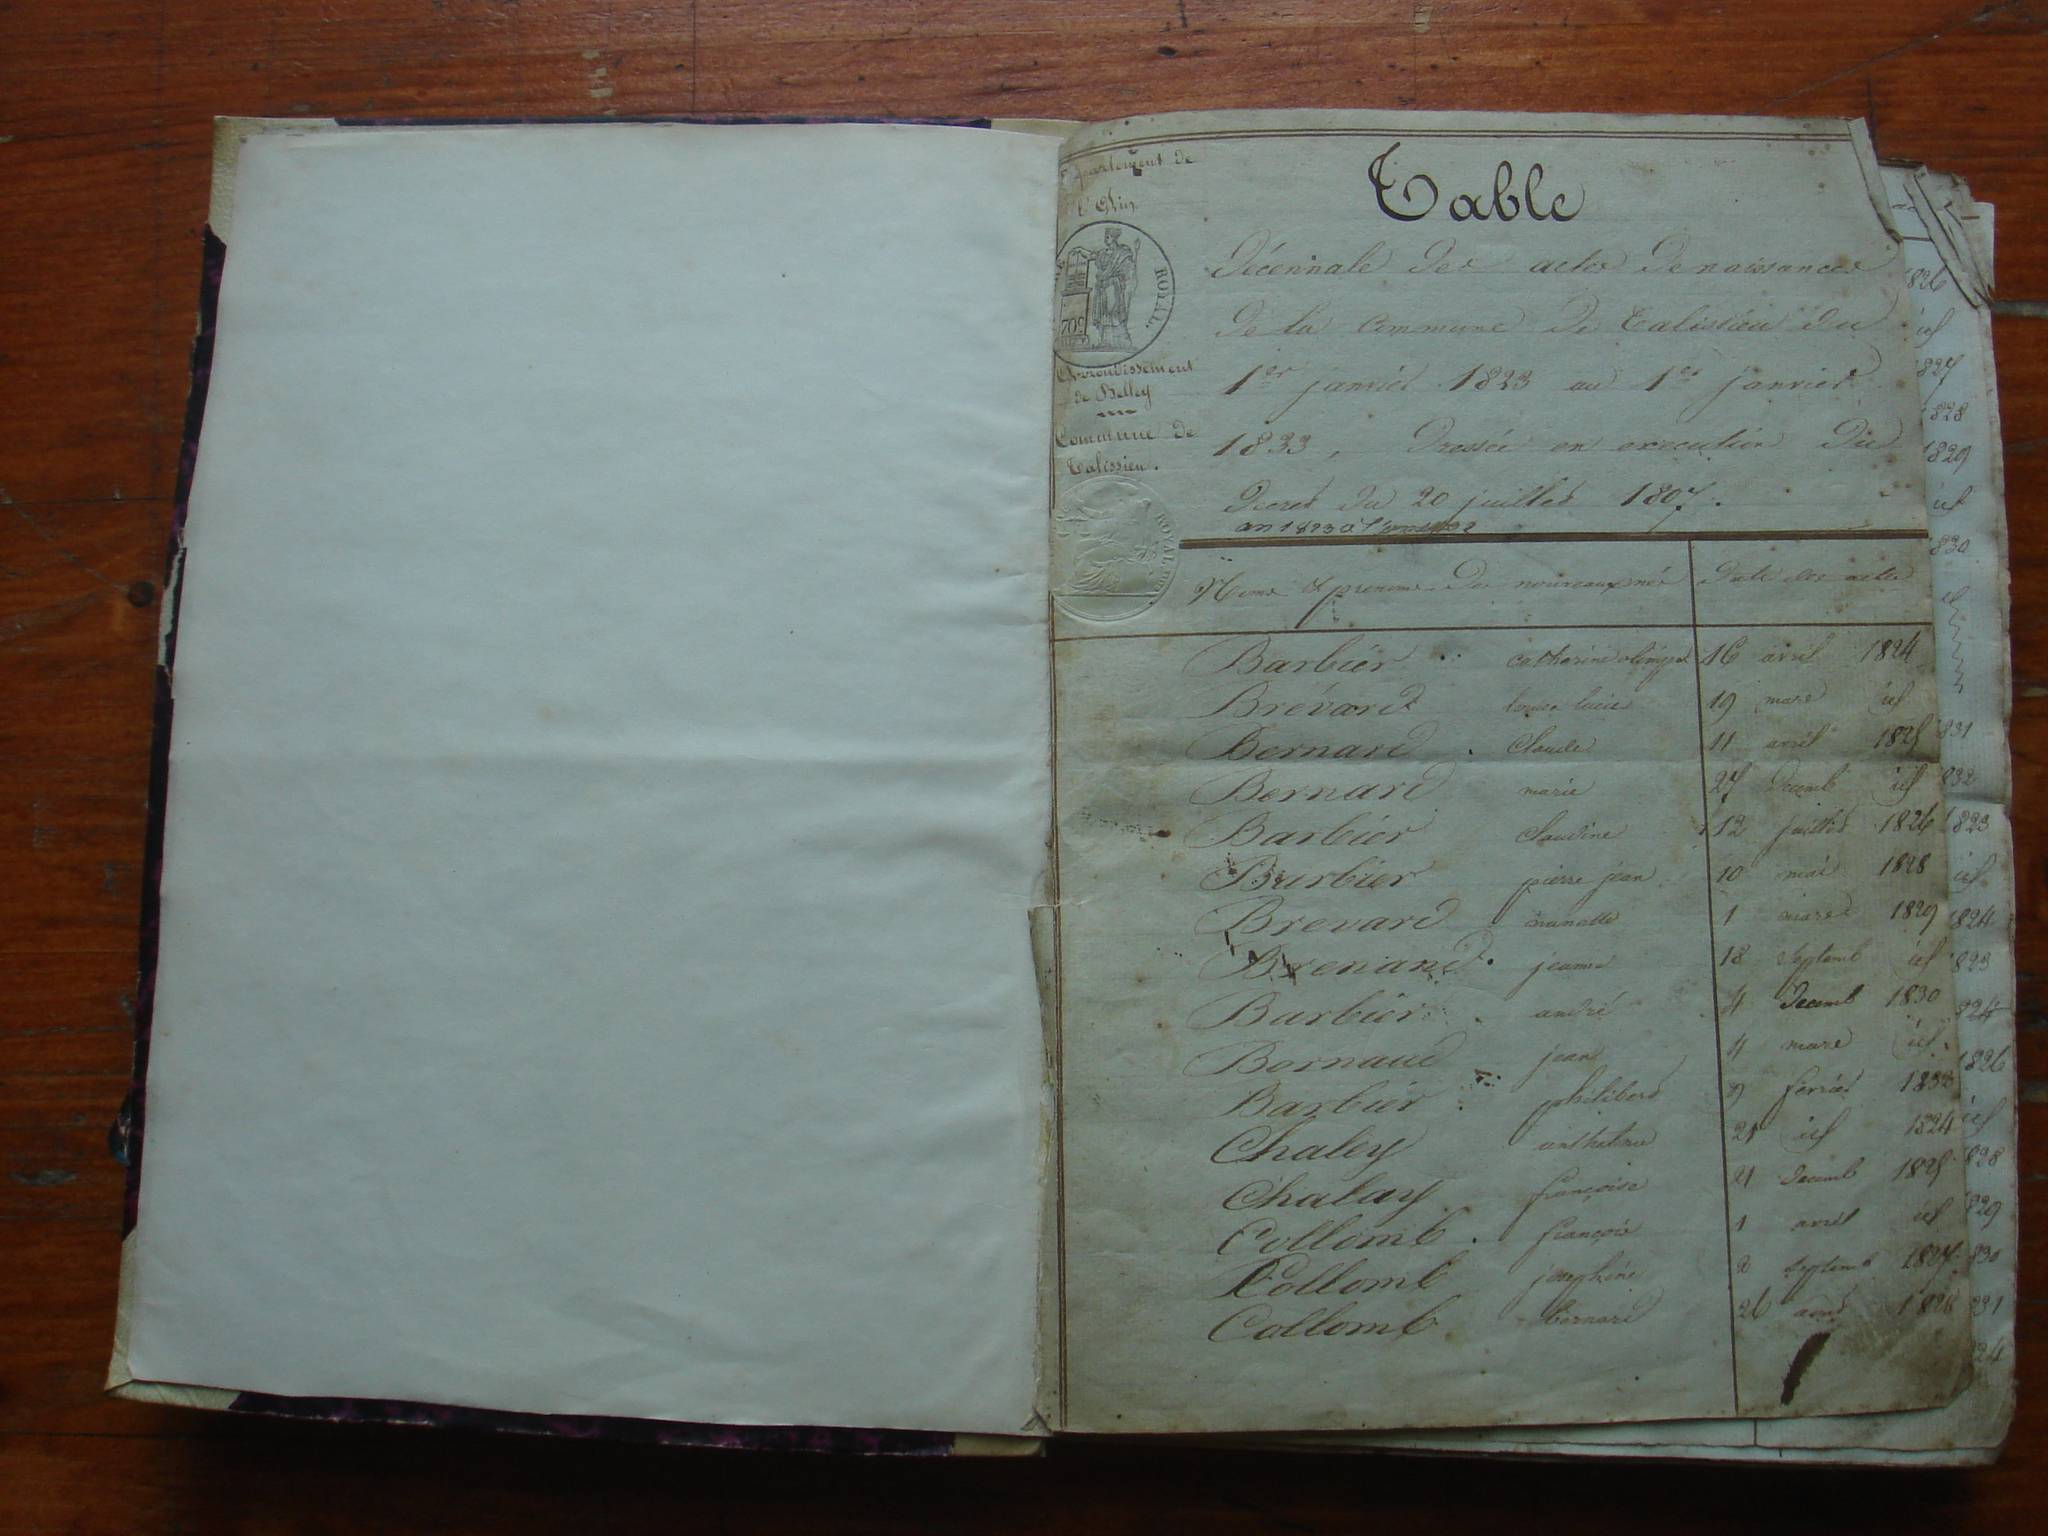 Département de
l'Ain
ROYAL
70c
Arrondissement
de Belley
Commune de
Talissieu.
ROYAL
Table
Décennale des actes de naissances
de la commune de Talissieu du
1er janvier 1823 au 1er janvier
1833, Dressée en execution du
Decret du 20 juillet 1807.
an 1823 a
Noms et prenoms des nouveaux nés Date des actes
Barbier catherine olimpe 16 avril 1824
Brévard louise lucie 19 mars id
Bernard Claude 11 avril 1825
Bernard marie 27 Decemb id
Barbier Claudine 12 juillet 1826
Barbier pierre jean 10 mai 1828
Brevard nanette 1 mars 1829
Brenand jeanne 18 septemb id
Barbier andré 4 Decemb 1830
Bernard jean 4 mars id
Barbier philibert 9 fevrier 1832
Chaley anthelme 21 id 1824
Chalay françoise 21 Decemb 1825
Collomb françois 1 avril id
Collomb josephine 2 septemb 1827
Collomb bernard 26 aout 1828
1826
id
1827
1828
1829
id
1830
831
832
1823
id
1824
1823
824
1826
id
828
829
830
831
824